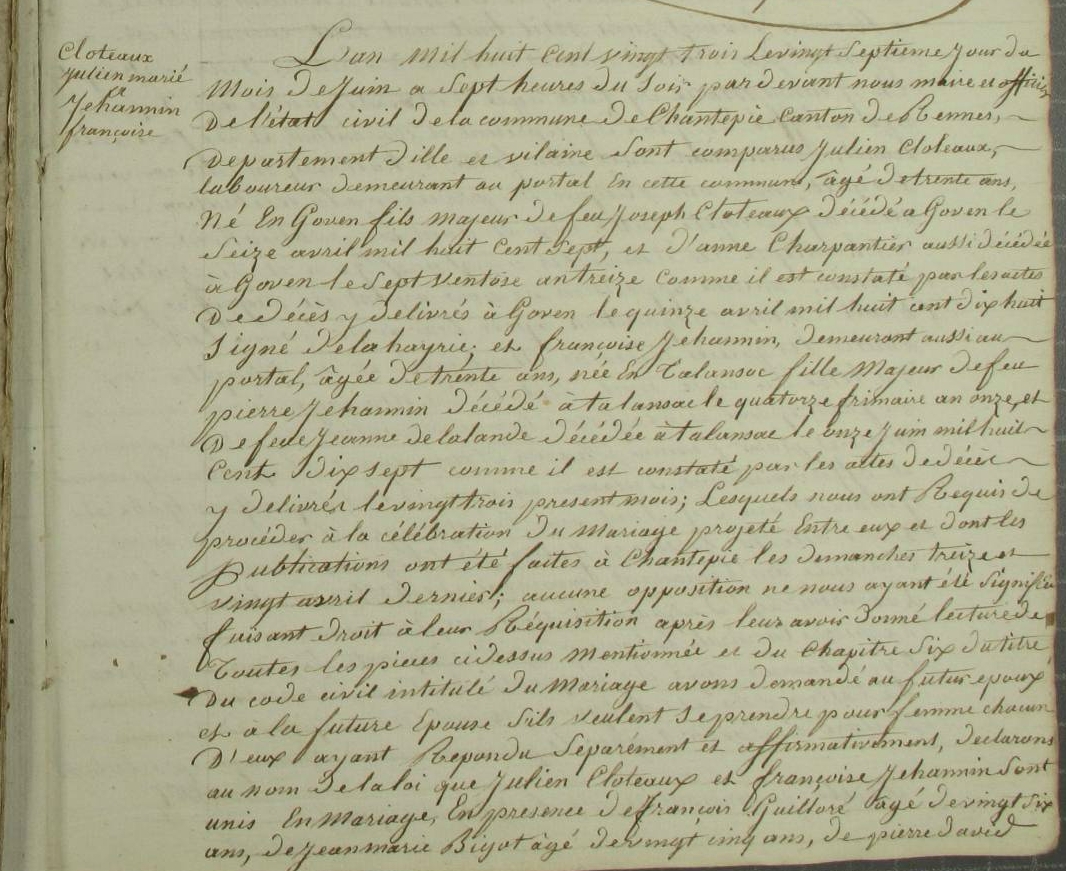 Cloteaux
Julien marié
a
Jehannin
françoise
L'an mil huit cent vingt trois le vingt septieme Jour du
Mois de Juin a sept heures du soir par devant nous maire et officier
De l'état civil de la commune de Chantepie Canton de Rennes,
Departement d'ille et vilaine sont comparus Julien Cloteaux,
laboureur demeurant au portal En cette commune, âgé de trente ans,
Né En Goven fils majeur de feu Joseph Cloteaux décédé a Goven le
Seize avril mil huit Cent Sept, et d'anne Charpantier aussi décédée
à Goven le Sept Ventose an treize Comme il est constaté par les actes
De décès y delivrés à Goven le quinze avril mil huit cent dix huit
Signé Delahayrie; et françoise Jehannin, demeurant aussi au
portal, âgée de trente ans, née En Talansac fille Majeur de feu
pierre Jehannin décédé à talansac le quatorze frimaire an onze, et
De feue Jeanne delalande décédée à talansac le onze Juin mil huit
Cent dix sept comme il est constaté par les actes de décès
y delivrés le vingt trois present mois; Lesquels nous ont Requis de
procéder à la célébration du Mariage projeté Entre eux et dont les
publications ont été faites à Chantepie les demanches treize et
vingt avril dernier; aucune opposition ne nous ayant été signifiée
faisant droit à leur Réquisition après leur avoir donné lecture de
Toutes les pieces cidessus Mentionnée et du Chapitre Six du titre
Du code civil intitulé du Mariage avons demandé au futur epoux
et à la future Epouse s'ils veulent se prendre pour femme chacun
D'eux ayant Repondu Séparément et affirmativement, declarons
au nom de la loi que Julien Cloteaux et françoise Jehannin sont
unis En Mariage, En presence de françois Guilloré âgé de vingt six
ans, de Jean marie Bigot âgé de vingt cinq ans, de pierre david